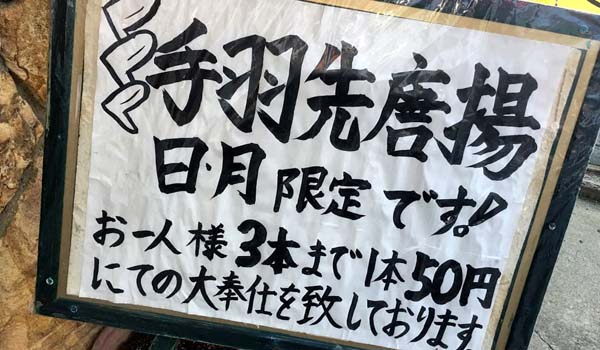 手羽先唐揚
日・月限定です!
お一人様3本まで1本50円
にての大奉仕を致しております